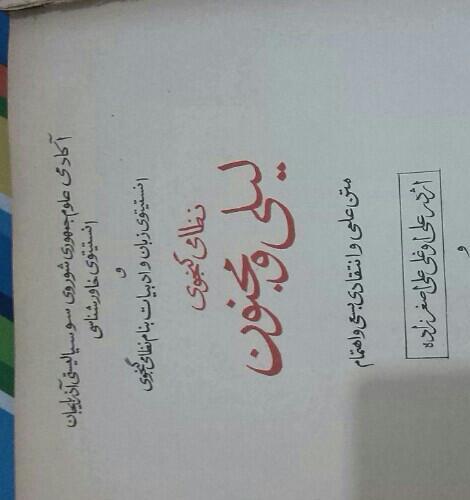 آکادمی علوم جمهوری شوروی سوسیالیستی آذربایجان
انستیتوی خاورشناسی
و
انستیتوی زبان و ادبیات بنام نظامی گنجوی
نظامی گنجوی
لیلی و مجنون
متن علمی و انتقادی بسعی و اهتمام
اژدر علی اوغلی علی اصغرزاده
و